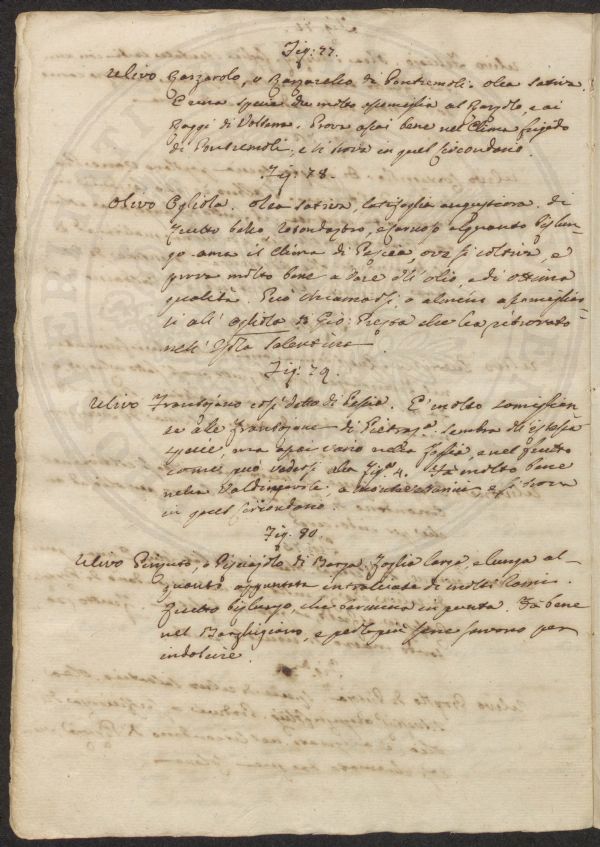 Fig: 77.
Ulivo Razzarolo, o Razzarello di Pontremoli. Olea sativa.
È una specie che molto assomiglia al Razzolo, e ai
Raggi di Volterra. Prova assai bene nel Clima frigido
di Pontremoli, e si trova in quel Circondario.
Fig: 78.
Olivo Ogliola. Olea sativa, latifoglia angustiora. di
frutto bello, rotondastro, e carnoso alquanto bislun-
go ama il clima di Pescia, ove si coltiva, e
prova molto bene a dare dell'olio, e di ottima
qualità. Può chiamarsi, o almeno assomigliar-
si all' Ogliola di Gio: Presta che ha ritrovato
nell' Isola Salentina.
Fig: 79.
Ulivo Frantojano così detto di Pescia. È molto somiglian-
te alle Frantojane di Pietras.ª sembra dell'istessa
specie, ma assai vario nella foglia, e nel frutto
come può vedersi alla Fig.ª 4. Fa molto bene
nella Valdinievole, a Montecatini e si trova
in quel circondario.
Fig. 80
Ulivo Pinzuto, o Pisciajolo di Barga. Foglia larga, e lunga al-
quanto appuntata intralciata di molti rami.
Frutto bislungo, che termina in punta. Fa bene
nel Barghigiano, e per lo più se ne servono per
indolcire.